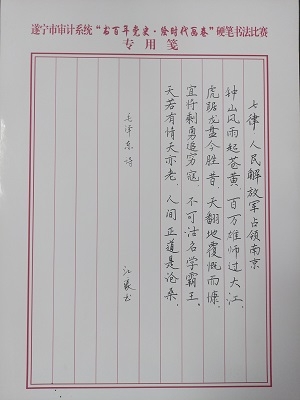 遂宁市审计系统“书百年党史·绘时代画卷”硬笔书法比赛
专用笺
七律 人民解放军占领南京
钟山风雨起苍黄，百万雄师过大江，
虎踞龙盘今胜昔，天翻地覆慨而慷，
宜将剩勇追穷寇，不可沽名学霸王，
天若有情天亦老，人间正道是沧桑，
毛泽东诗
书